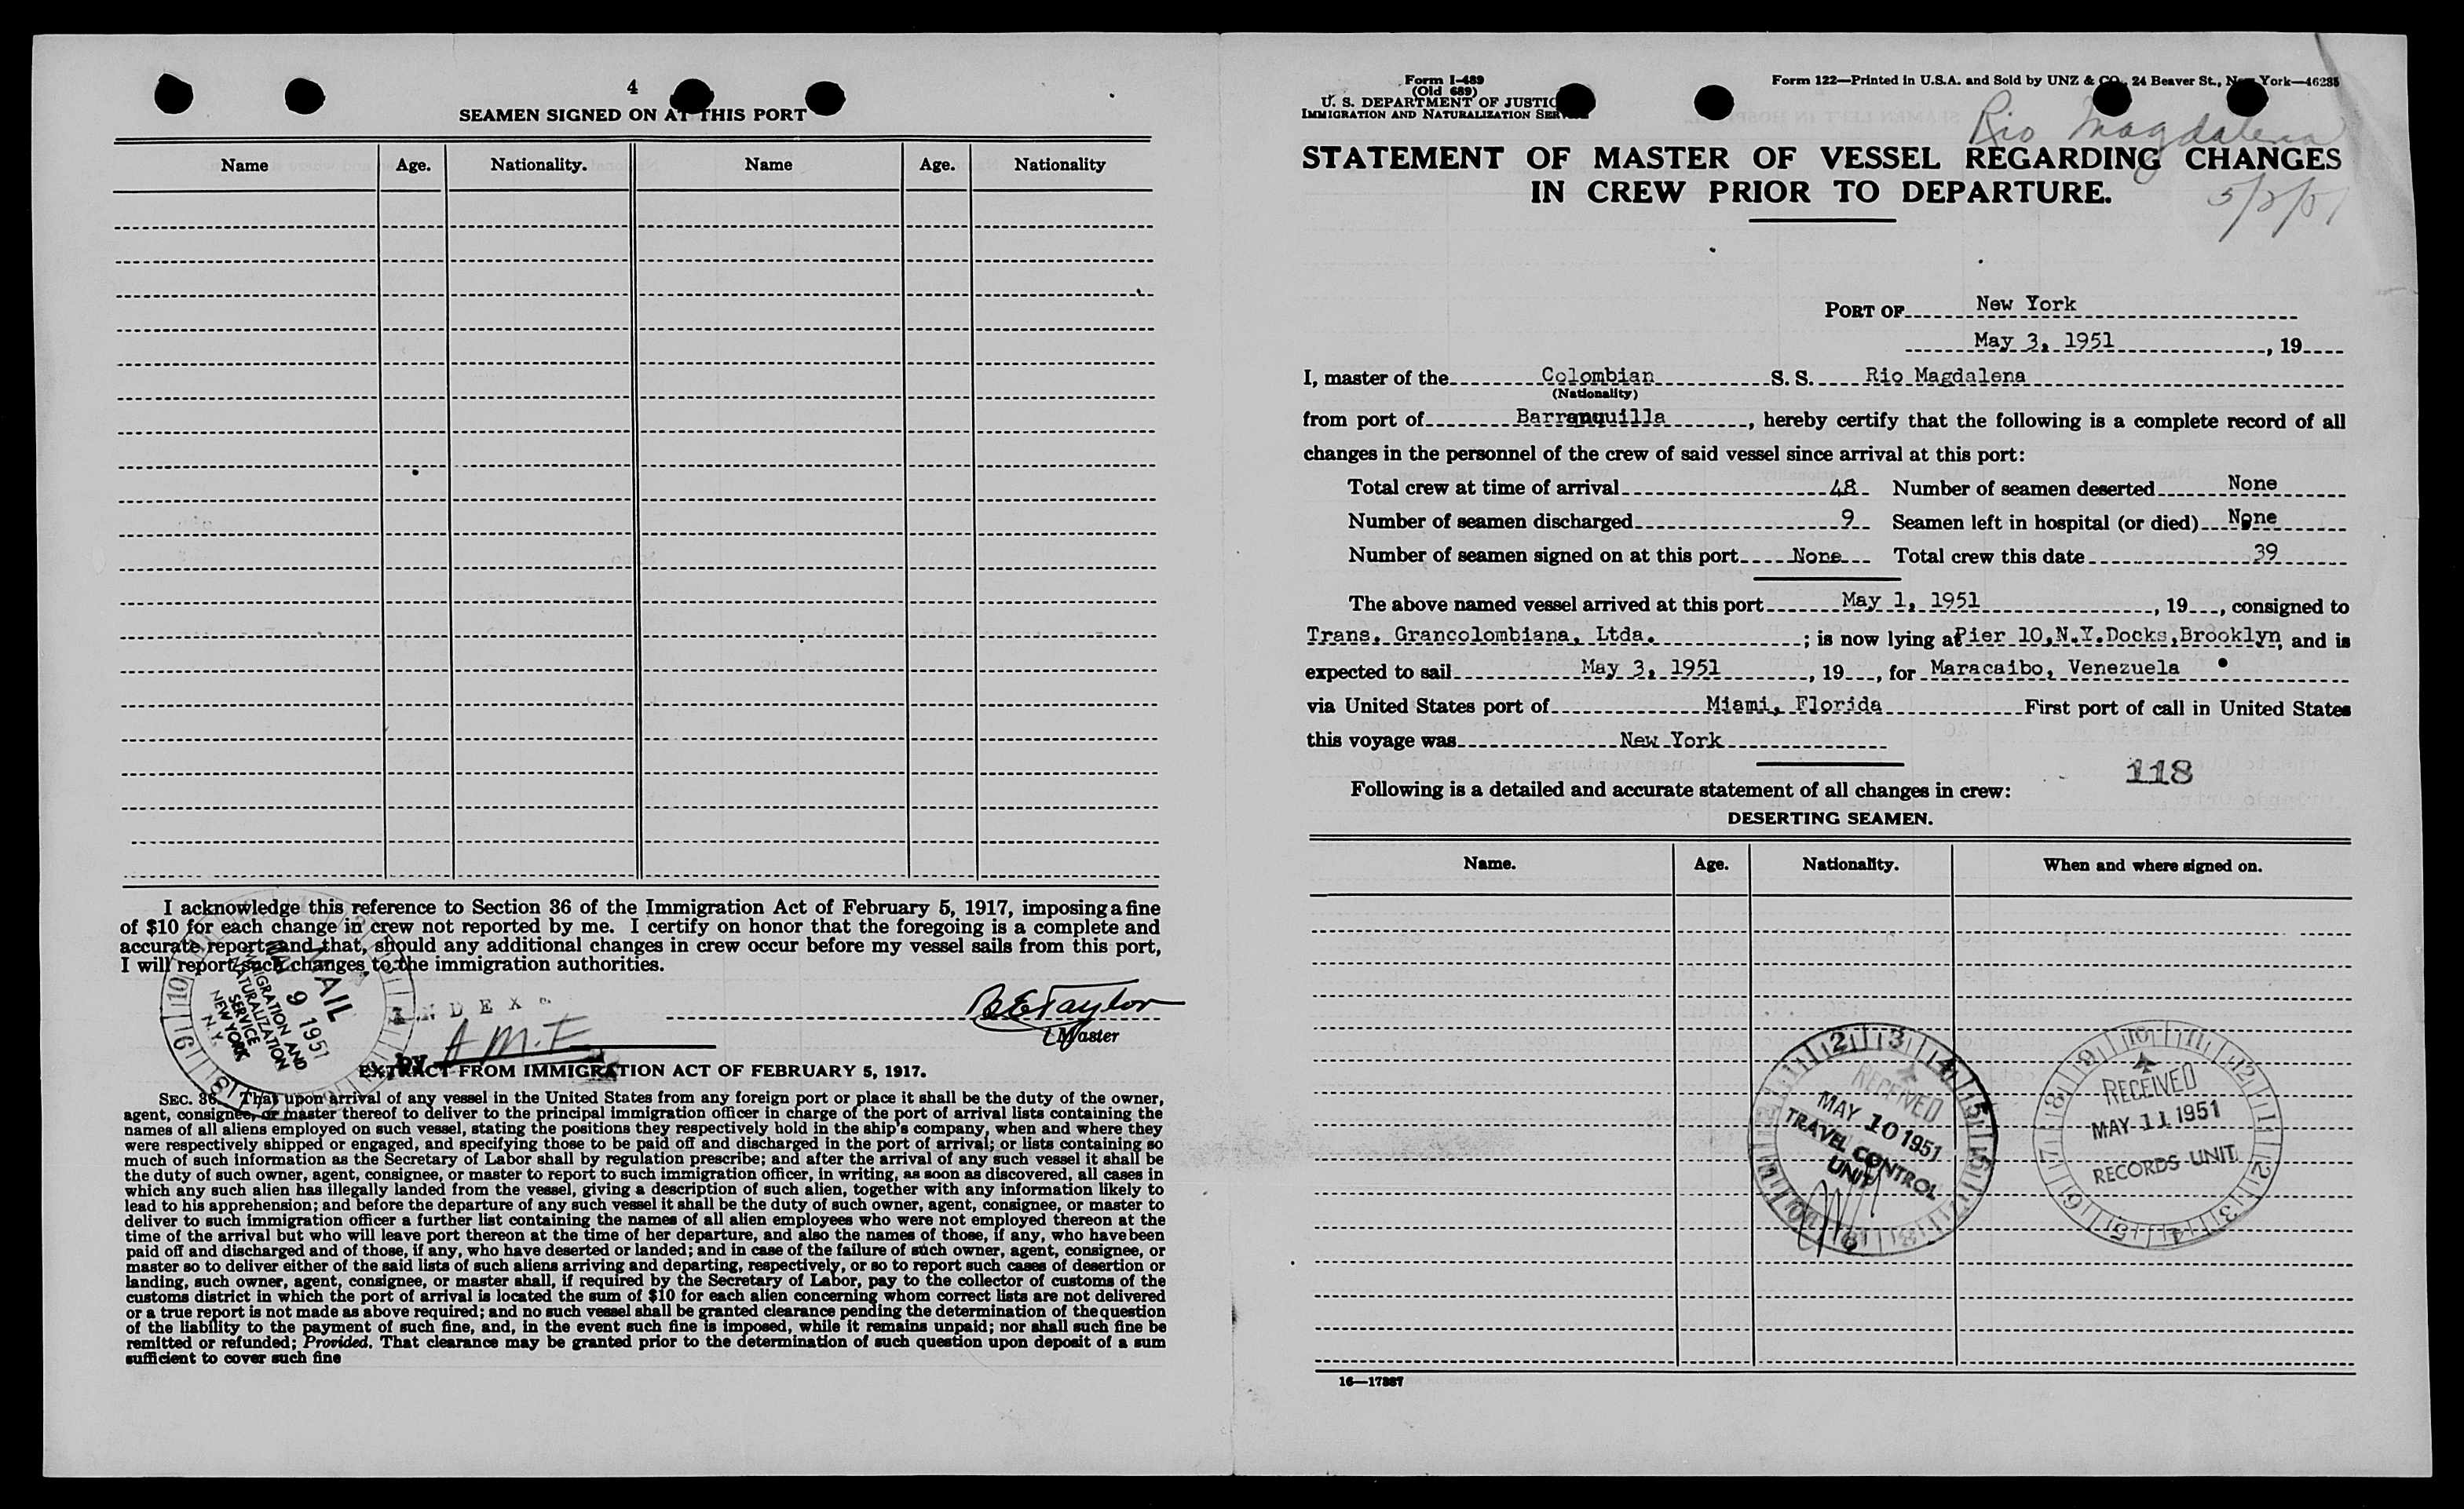 4
SEAMEN SIGNED ON AT THIS PORT
Name Age. Nationality. Name Age. Nationality
I acknowledge this reference to Section 36 of the Immigration Act of February 5, 1917, imposing a fine
of $10 for each change in crew not reported by me. I certify on honor that the foregoing is a complete and
accurate report and that, should any additional changes in crew occur before my vessel sails from this port,
I will report such changes to the immigration authorities.
MAIL
MAY 9 1951
IMMIGRATION AND
NATURALIZATION
SERVICE
NEW YORK
N. Y.
INDEX
by A.M.F.
Taylor
Master
EXTRACT FROM IMMIGRATION ACT OF FEBRUARY 5, 1917.
SEC. 36. That upon arrival of any vessel in the United States from any foreign port or place it shall be the duty of the owner,
agent, consignee, or master thereof to deliver to the principal immigration officer in charge of the port of arrival lists containing the
names of all aliens employed on such vessel, stating the positions they respectively hold in the ship's company, when and where they
were respectively shipped or engaged, and specifying those to be paid off and discharged in the port of arrival; or lists containing so
much of such information as the Secretary of Labor shall by regulation prescribe; and after the arrival of any such vessel it shall be
the duty of such owner, agent, consignee, or master to report to such immigration officer, in writing, as soon as discovered, all cases in
which any such alien has illegally landed from the vessel, giving a description of such alien, together with any information likely to
lead to his apprehension; and before the departure of any such vessel it shall be the duty of such owner, agent, consignee, or master to
deliver to such immigration officer a further list containing the names of all alien employees who were not employed thereon at the
time of the arrival but who will leave port thereon at the time of her departure, and also the names of those, if any, who have been
paid off and discharged and of those, if any, who have deserted or landed; and in case of the failure of such owner, agent, consignee, or
master so to deliver either of the said lists of such aliens arriving and departing, respectively, or so to report such cases of desertion or
landing, such owner, agent, consignee, or master shall, if required by the Secretary of Labor, pay to the collector of customs of the
customs district in which the port of arrival is located the sum of $10 for each alien concerning whom correct lists are not delivered
or a true report is not made as above required; and no such vessel shall be granted clearance pending the determination of the question
of the liability to the payment of such fine, and, in the event such fine is imposed, while it remains unpaid; nor shall such fine be
remitted or refunded; Provided, That clearance may be granted prior to the determination of such question upon deposit of a sum
sufficient to cover such fine
Form I-489
(Old 689)
U. S. DEPARTMENT OF JUSTICE
IMMIGRATION AND NATURALIZATION SERVICE
Form 122—Printed in U.S.A. and Sold by UNZ & CO., 24 Beaver St., New York—46285
Rio Magdalena
STATEMENT OF MASTER OF VESSEL REGARDING CHANGES
IN CREW PRIOR TO DEPARTURE.
PORT OF New York
May 3, 1951, 19
I, master of the Colombian S. S. Rio Magdalena
(Nationality)
from port of Barranquilla, hereby certify that the following is a complete record of all
changes in the personnel of the crew of said vessel since arrival at this port:
Total crew at time of arrival 48 Number of seamen deserted None
Number of seamen discharged 9 Seamen left in hospital (or died) None
Number of seamen signed on at this port None Total crew this date 39
The above named vessel arrived at this port May 1, 1951, 19, consigned to
Trans. Grancolombiana, Ltda. ; is now lying at Pier 10,N.Y.Docks,Brooklyn, and is
expected to sail May 3, 1951, 19, for Maracaibo, Venezuela
via United States port of Miami, Florida First port of call in United States
this voyage was New York
118
Following is a detailed and accurate statement of all changes in crew:
DESERTING SEAMEN.
Name. Age. Nationality. When and where signed on.
RECEIVED
MAY 10 1951
TRAVEL CONTROL
UNIT
RECEIVED
MAY 11 1951
RECORDS UNIT
16—17887